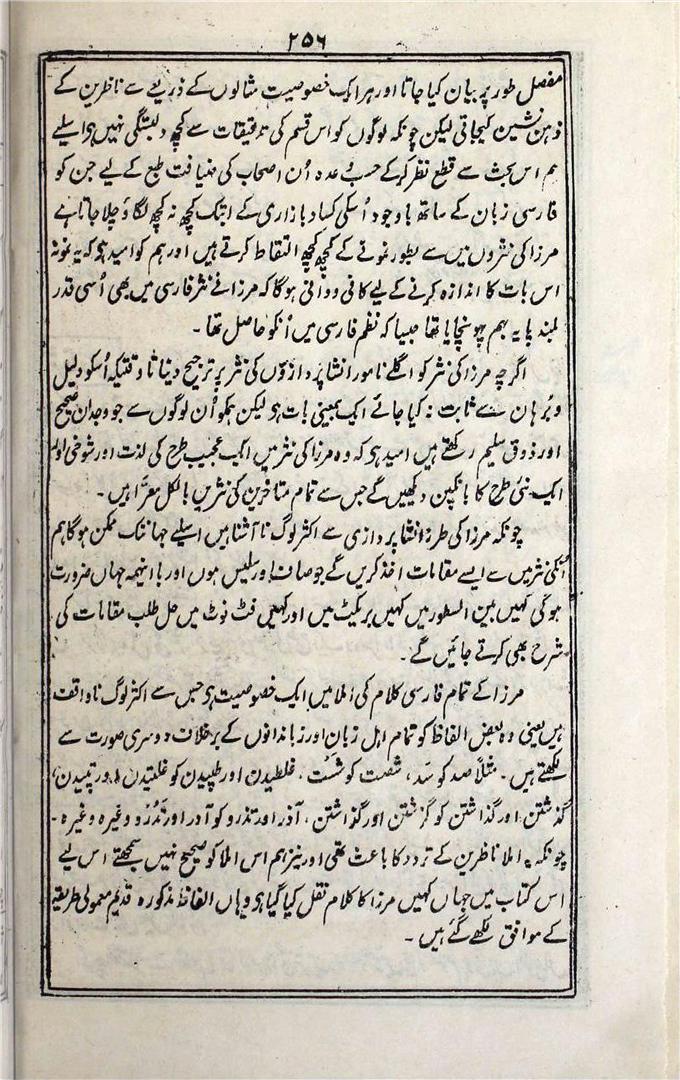 ۲۵۶
مفصل طور پر بیان کیا جاتا اور ہر ایک خصوصیت مثالوں کے ذریعے سے ناظرین کے
ذہن نشین کیجاتی لیکن چونکہ لوگوں کو اس قسم کی تدقیقات سے کچھ دلبستگی نہیں ہو اسلیے
ہم اس بحث سے قطع نظر کرکے حسبِ وعدہ اُن اصحاب کی ضیافت طبع کے لیے جن کو
فارسی زبان کے ساتھ باوجود اُسکی کساد بازاری کے ابتک کچھ نہ کچھ لگاؤ چلا جاتا ہے
مرزا کی نثروں میں سے بطور نمونے کے کچھ کچھ التقاط کرتے ہیں اور ہم کو امید ہو کہ یہ نمونہ
اس بات کا اندازہ کرنے کے لیے کافی و وافی ہوگا کہ مرزا نے نثر فارسی میں بھی اُسی قدر
بلند پایہ بہم پہونچایا تھا جیسا کہ نظم فارسی میں اُنکو حاصل تھا ۔
اگرچہ مرزا کی نثر کو اگلے نامور انشا پردازوں کی نثر پر ترجیح دینا تا وقتیکہ اُسکو دلیل
و برہان سے ثابت نہ کیا جائے ایک بمعنی بات ہو لیکن ہمکو اُن لوگوں سے جو وجدان صحیح
اور ذوق سلیم رکھتے ہیں امید ہو کہ وہ مرزا کی نثر میں ایک عجیب طرح کی لذت اور شوخی اور
ایک نئی طرح کا بانکپن دیکھیں گے جس سے تمام متاخرین کی نثریں بالکل معرّا ہیں ۔
چونکہ مرزا کی طرز انشا پردازی سے اکثر لوگ نا آشنا ہیں اسلیے جہانتک ممکن ہوگا ہم
اُنکی نثر میں سے ایسے مقامات اخذ کریں گے جو صاف اور سلیس ہوں اور با اینہمہ جہاں ضرورت
ہوگی کہیں بین السطور میں کہیں بریکیٹ میں اور کہیں فٹ نوٹ میں حل طلب مقامات کی
شرح بھی کرتے جائیں گے ۔
مرزا کے تمام فارسی کلام کی املا میں ایک خصوصیت ہو جس سے اکثر لوگ ناواقف
ہیں یعنی وہ بعض الفاظ کو تمام اہل زبان اور زباندانوں کے برخلاف دوسری صورت سے
لکھتے ہیں ۔ مثلًا صد کو سَد ، شصت کو شست ، غلطیدن اور طپیدن کو غلتیدن اور تپیدن ،
گذشتن اور گذاشتن کو گزشتن اور گزاشتن ، آذر اور تذرو کو آدر اور تدرو وغیرہ وغیرہ ۔
چونکہ یہ املا ناظرین کے تردد کا باعث تھی اور نیز ہم اس املا کو صحیح نہیں سمجھتے اس لیے
اس کتاب میں جہاں کہیں مرزا کا کلام نقل کیا گیا ہو وہاں الفاظ مذکورہ قدیم معمولی طریقہ
کے موافق لکھے گئے ہیں ۔